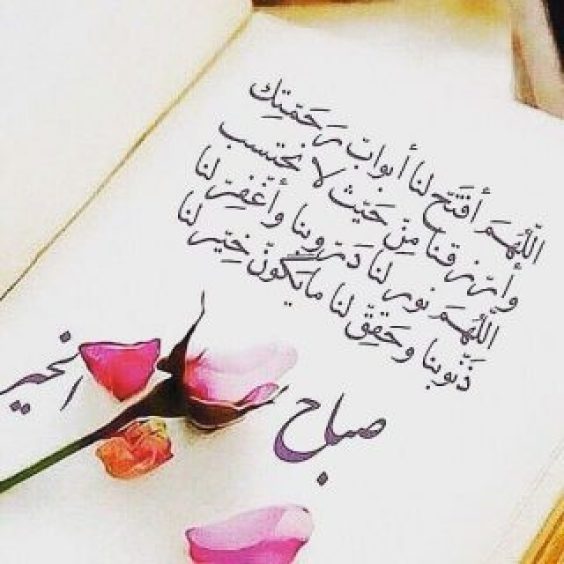 اللَّهُمَ أفتَح لنا أبوابّ رَحَمّتِك
وأرّزقنا مِنّ حَيّث لا نحتسب
اللَّهُمَ نور لنا دَرّوبنا وأغّفِرّ لنا
ذَنّوبنا وحَقِقّ لنا مايَكّونّ خَيّر لنا
صباح الخير